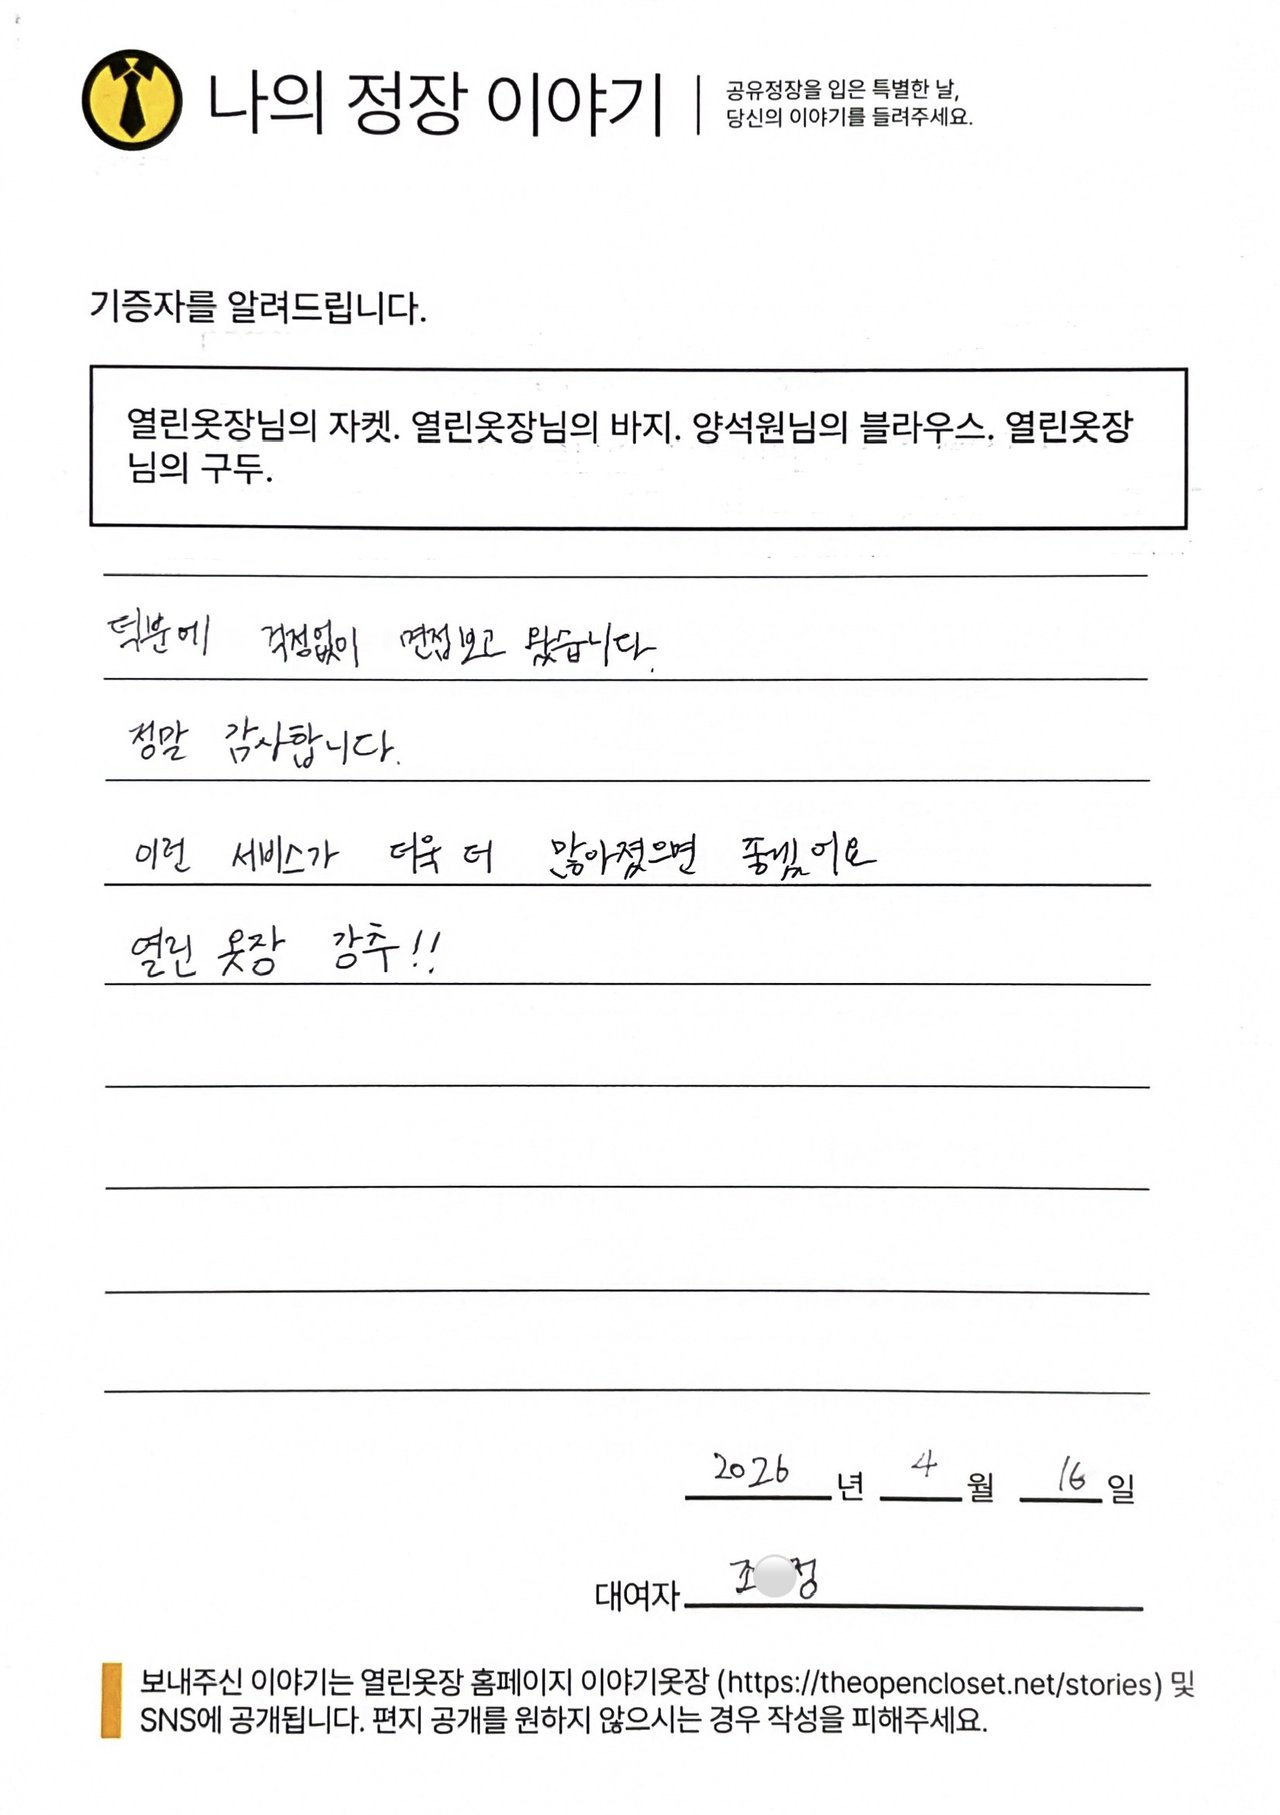 나의 정장 이야기
공유정장을 입은 특별한 날,
당신의 이야기를 들려주세요.
기증자를 알려드립니다.
열린옷장님의 자켓. 열린옷장님의 바지. 양석원님의 블라우스. 열린옷장
님의 구두.
덕분에 걱정없이 면접보고 왔습니다.
정말 감사합니다.
이런 서비스가 더욱 더 많아졌으면 좋겠어요
열린 옷장 강추!!
2026 년 4 월 16 일
대여자 조 정
보내주신 이야기는 열린옷장 홈페이지 이야기옷장 (https://theopencloset.net/stories) 및
SNS에 공개됩니다. 편지 공개를 원하지 않으시는 경우 작성을 피해주세요.